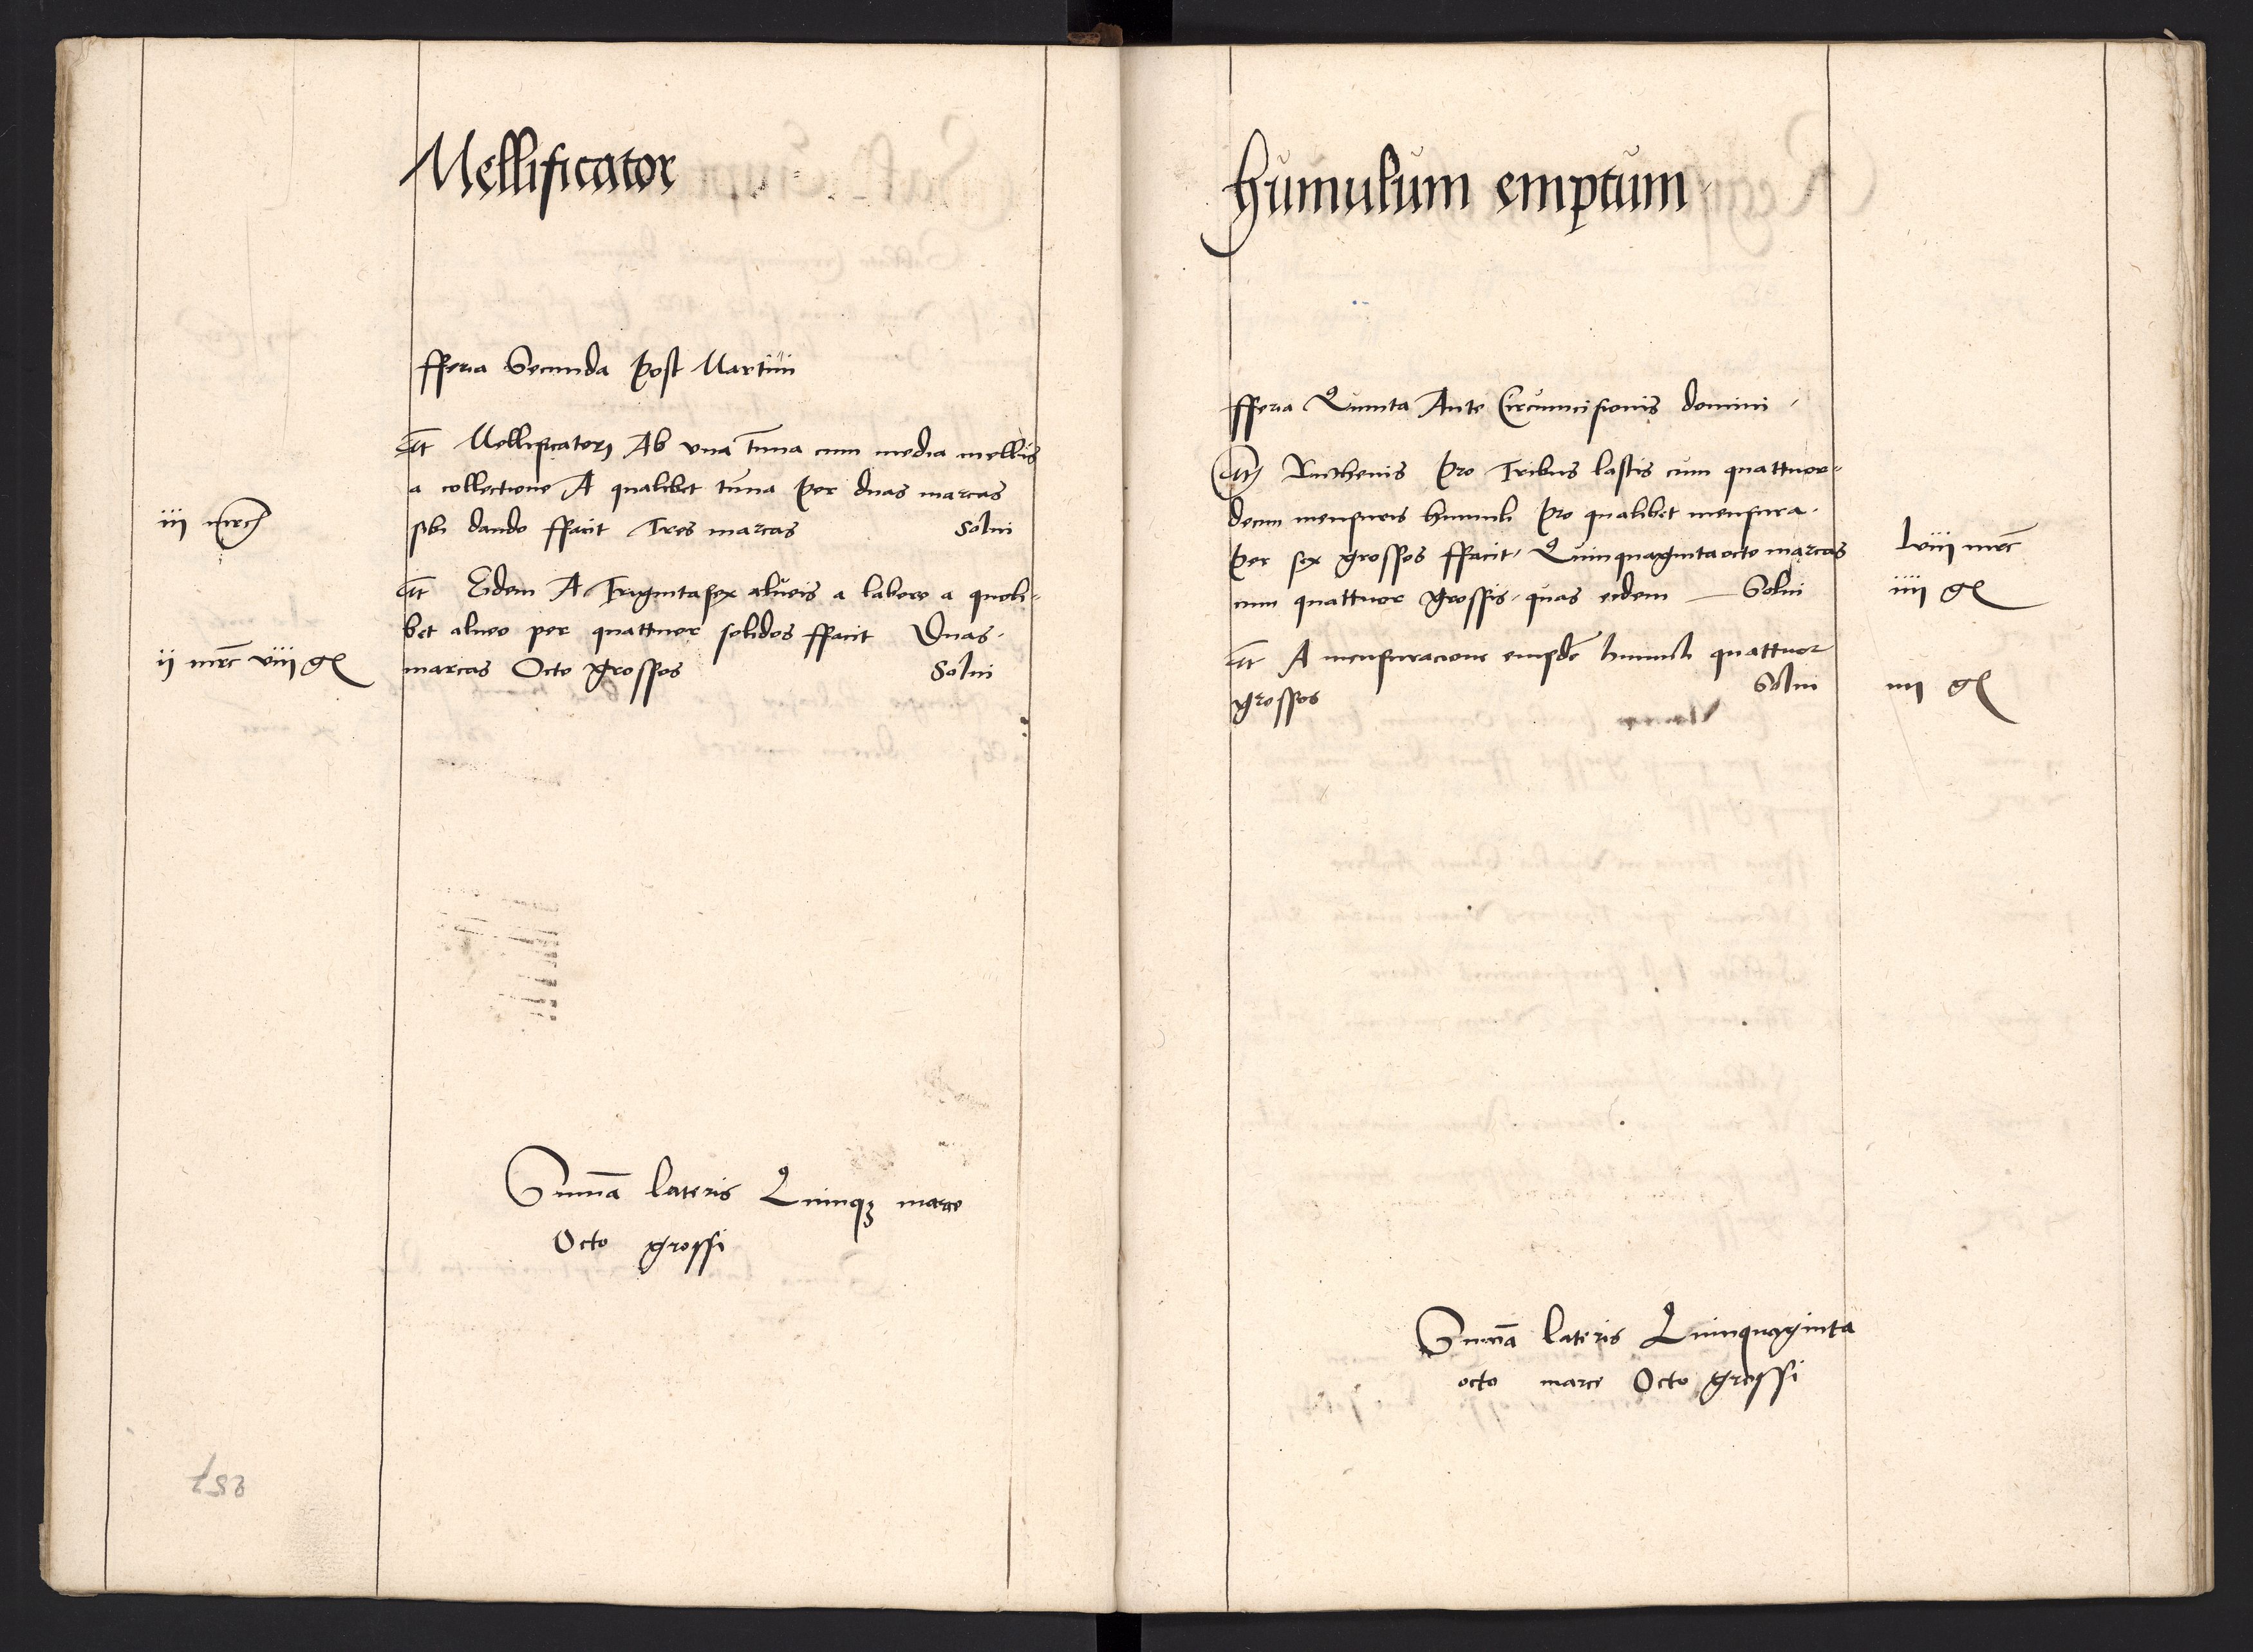 Mellificator
fferia Secunda Post Martini
Itt Mellificatori Ab vna tūna cum media mellis
a collectione A qualibet tūna Per duas marcas
sibi dando ffacit Tres marcas Solui
iii mrc
Itt Eidem A Trigintasex alueis a labore a quoli-
bet alueo per quattuor solidos ffacit Duas
marcas Octo grossos Solui
ii mrc viii gr
Sum̄a lateris Quinqꝫ marce
Octo grossi
257
Humulum emptum
fferia Quinta Ante Circumcisionis domini
Itt Ruthenis Pro Tribus lastis cum quattuor-
decim mensuris humuli Pro qualibet mensura
Per sex grossos ffacit Quinquagintaocto marcas
cum quattuor grossis quas eidem Solui
lviii mrc
iiii gr
Itt A mensuracione eiusdē humuli quattuor
grossos Solui
iiii gr
Sum̄a lateris Quinquaginta
octo marce Octo grossi